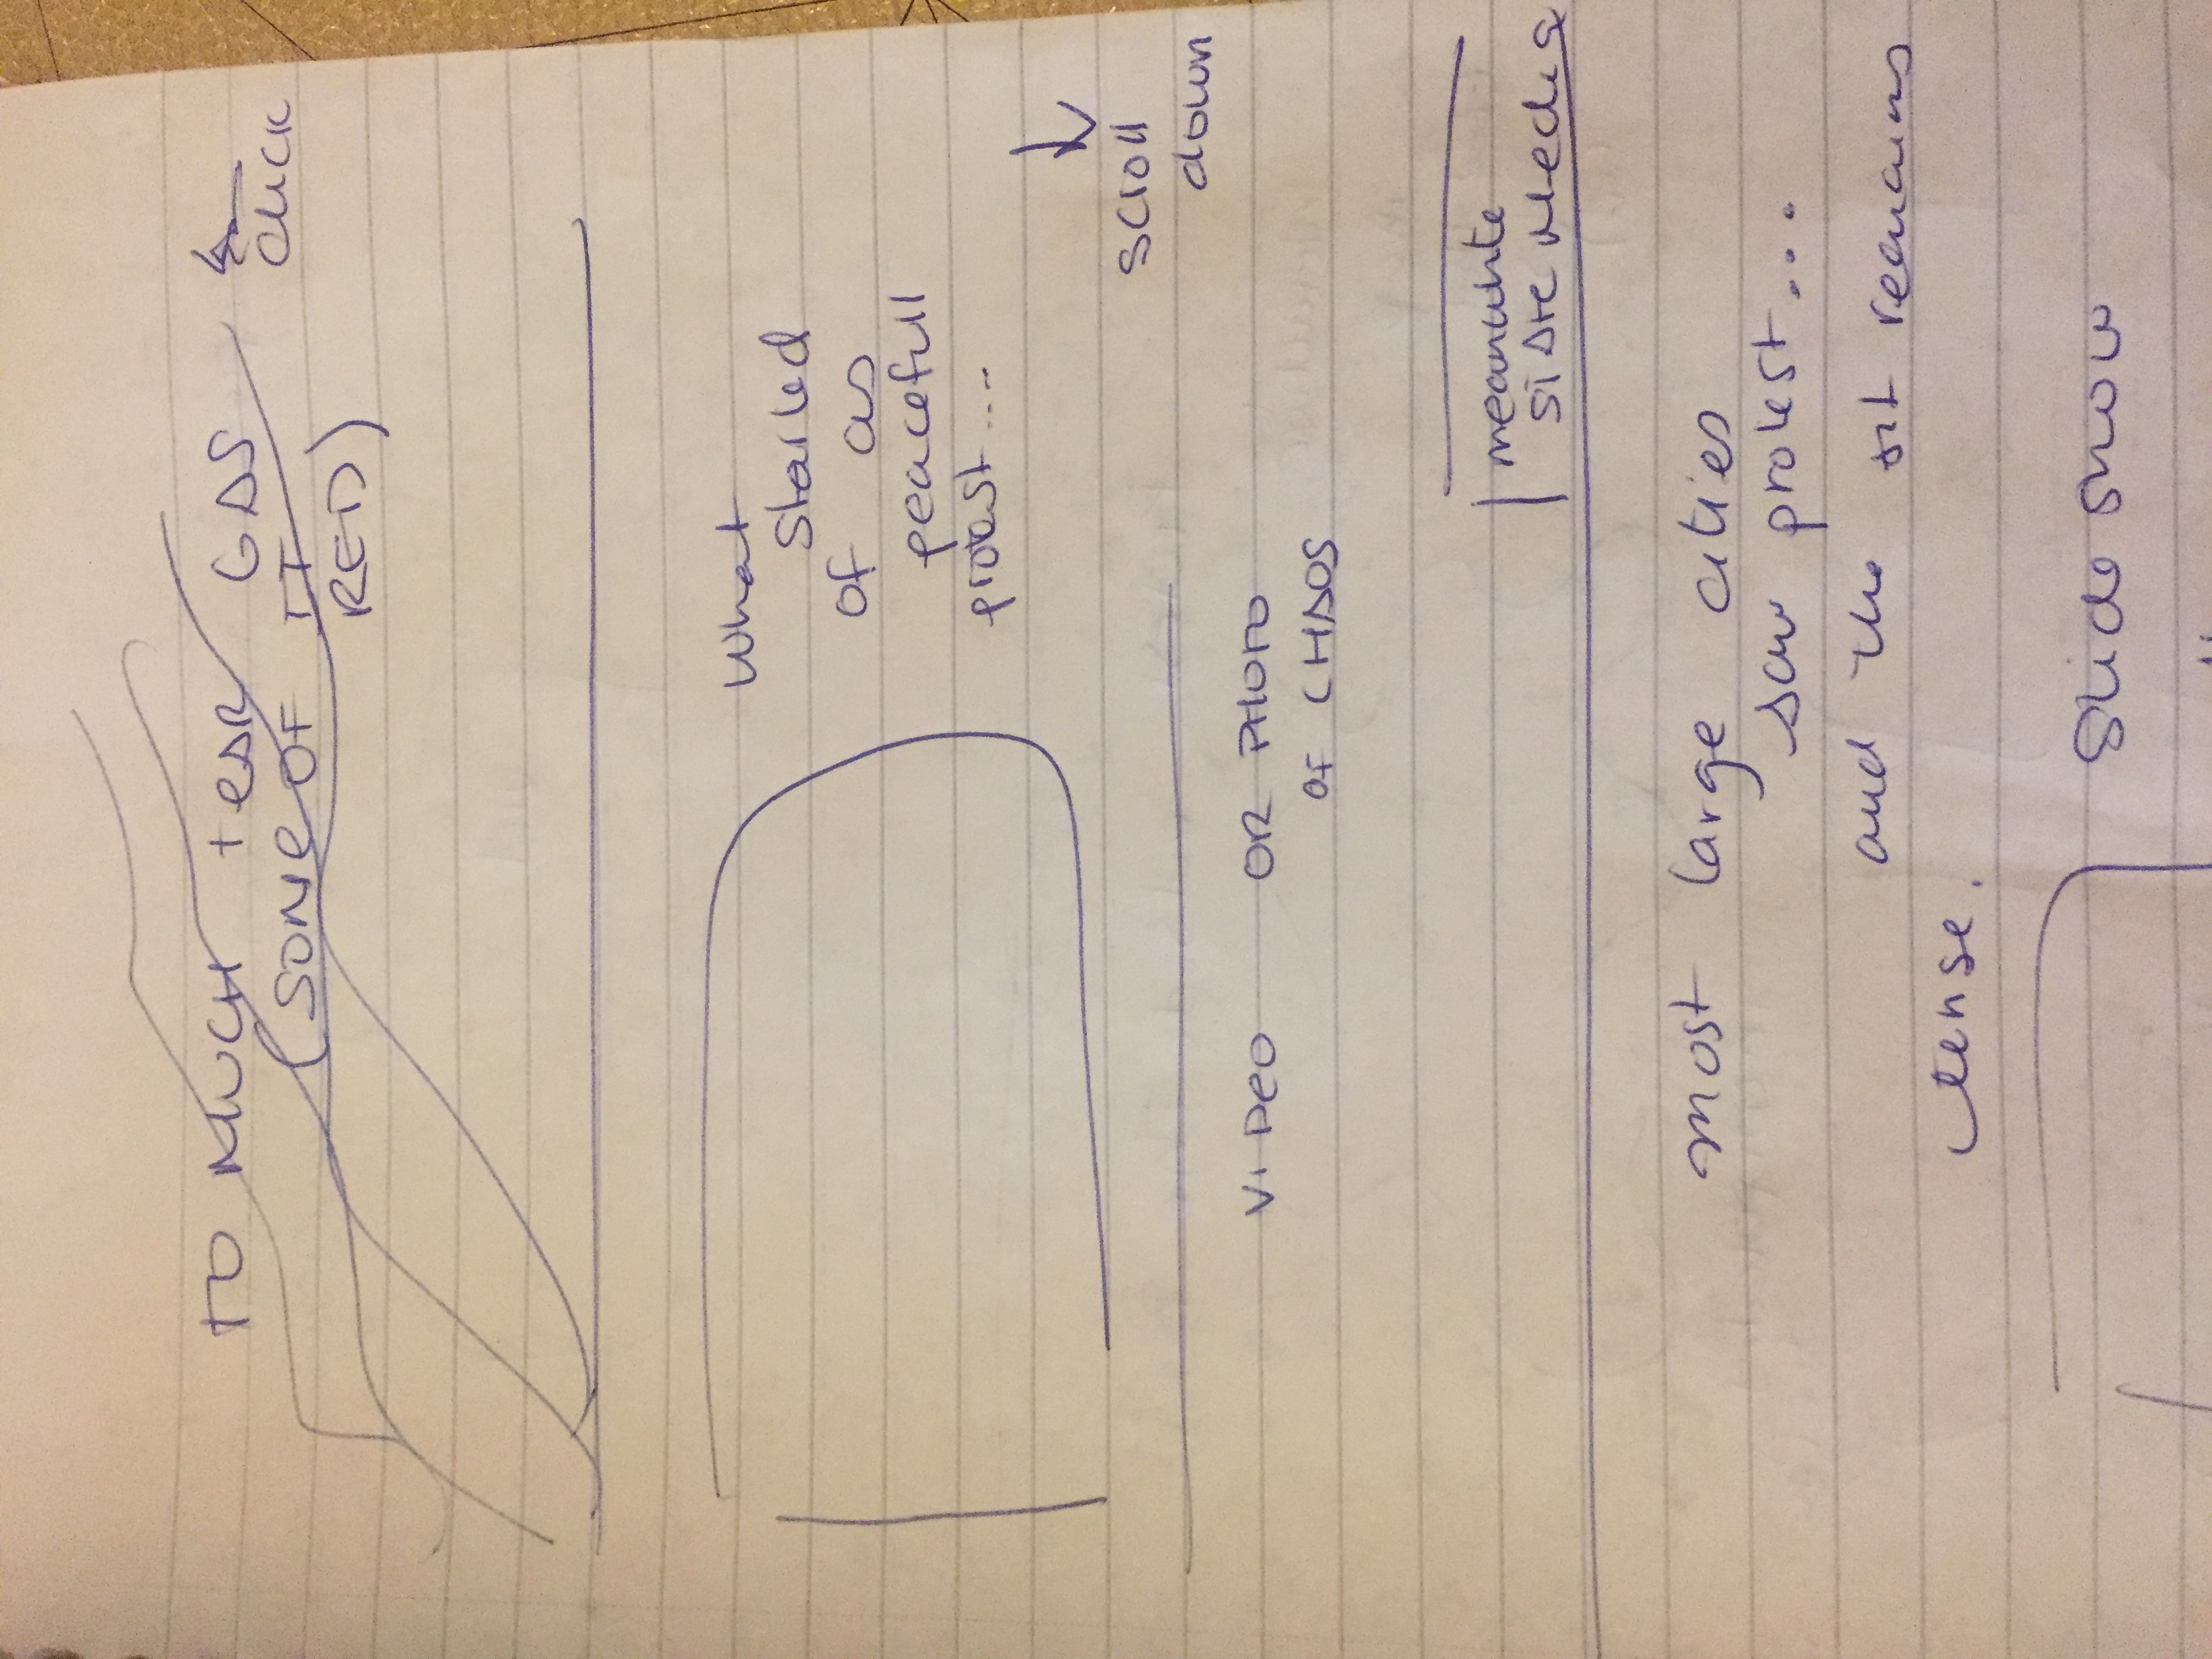 TO MUCH tear GAS
(SOME OF IT
RED)
click
What
started
of as
peacefull
protest....
scroll
down
VIDEO OR PHOTO
OF CHAOS
meanwhile
STATE Media
most large cities
saw protest...
and the sit remains
tense.
Slide show